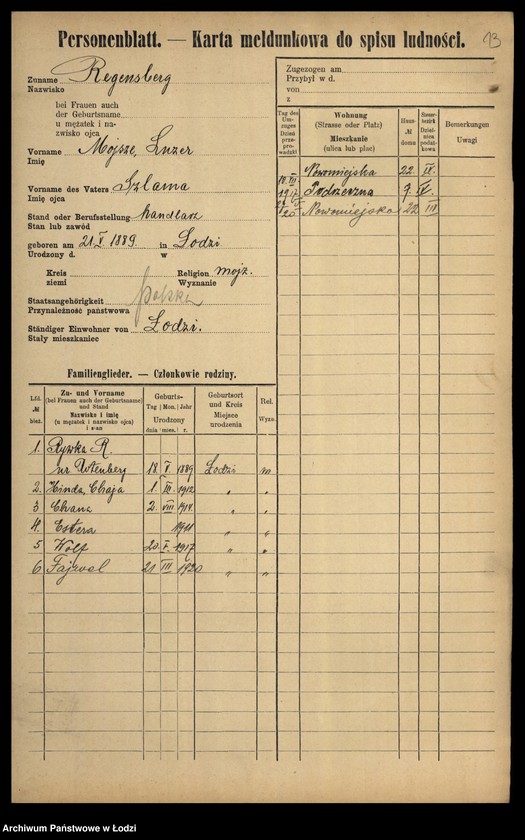 Personenblatt. — Karta meldunkowa do spisu ludności.
13
Zuname Regensberg
Nazwisko
bei Frauen auch
der Geburtsname
u mężatek i na-
zwisko ojca
Vorname Mojsze, Luzer
Imię
Vorname des Vaters Szlama
Imię ojca
Stand oder Berufsstellung handlarz
Stan lub zawód
geboren am 21 V 1889 in Lodzi
Urodzony d. w
Kreis Religion mojż.
ziemi Wyznanie
Staatsangehörigkeit polska
Przynależność państwowa
Ständiger Einwohner von Łodzi.
Stały mieszkaniec
Zugezogen am
Przybył w d.
von
z
Tag des Um-zuges Dzień prze-prowadzki
Wohnung (Strasse oder Platz) Mieszkanie (ulica lub plac)
Haus- № domu
Steuer-bezirk Dzielnica podat-kowa
Bemerkungen Uwagi
Nowomiejska 22. IX.
1917 Podrzeczna 9. IV.
20 Nowomiejska 22 III
Familienglieder. — Członkowie rodziny.
Lfd. № bież.
Zu- und Vorname (bei Frauen auch der Geburtsname) und Stand Nazwisko i imię (u mężatek i nazwisko ojca) i stan
Geburts- Tag Mon. Jahr Urodzony dnia mies. r.
Geburtsort und Kreis Miejsce urodzenia
Rel. Wyzn.
1. Rywka R.
ur. Utenberg 18 V 1889 Łodzi m
2. Hinda, Chaja 1. III. 1912 " "
3 Chana 2. VIII 1914 " "
4. Estera " "
5 Wolf 20. V. 1917 " "
6 Fajwel 21 III 1920 " "
Archiwum Państwowe w Łodzi